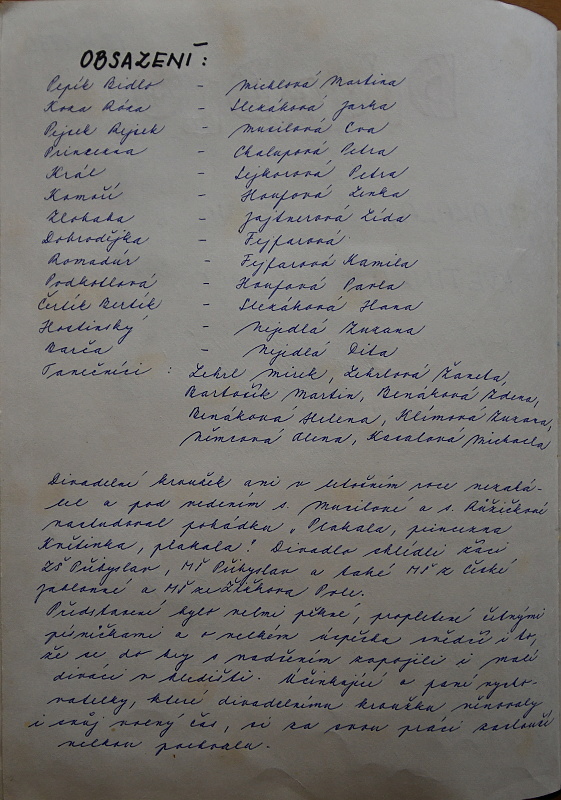 OBSAZENÍ :
Pepík Bidlo - Michlová Martina
Koza Róza - Slezáková Jarka
Pejsek Rejsek - Musilová Eva
Princezna - Chalupová Petra
Král - Sejkorová Petra
Komoří - Houfová Lenka
Zlobaba - Jajtnerová Lída
Dobrodějka - Fejfarová
Romadúr - Fejfarová Kamila
Podkotlová - Houfová Pavla
Čertík Bertík - Slezáková Hana
Hostinský - Nejedlá Zuzana
Barča - Nejedlá Dita
Tanečníci : Lehrl Mirek, Lehrlová Žaneta,
Bartošík Martin, Benáková Zdena,
Benáková Helena, Klímová Zuzana,
Němcová Alena, Kasalová Michaela
Divadelní kroužek ani v letošním roce nezahá-
lel a pod vedením s. Musilové a s. Růžičkové
nastudoval pohádku „Plakala, princezna
Květinka, plakala! Divadlo shlédli žáci
ZŠ Přibyslav, MŠ Přibyslav a také MŠ z České
Jablonné a MŠ ze Žižkova Pole.
Představení bylo velmi pěkné, propletené četnými
písničkami a o velkém úspěchu svědčí i to,
že se do hry s nadšením zapojili i malí
diváci v hledišti. Účinkující a paní vycho-
vatelky, které divadelnímu kroužku věnovaly
i svůj volný čas, si za svou práci zaslouží
velkou pochvalu.